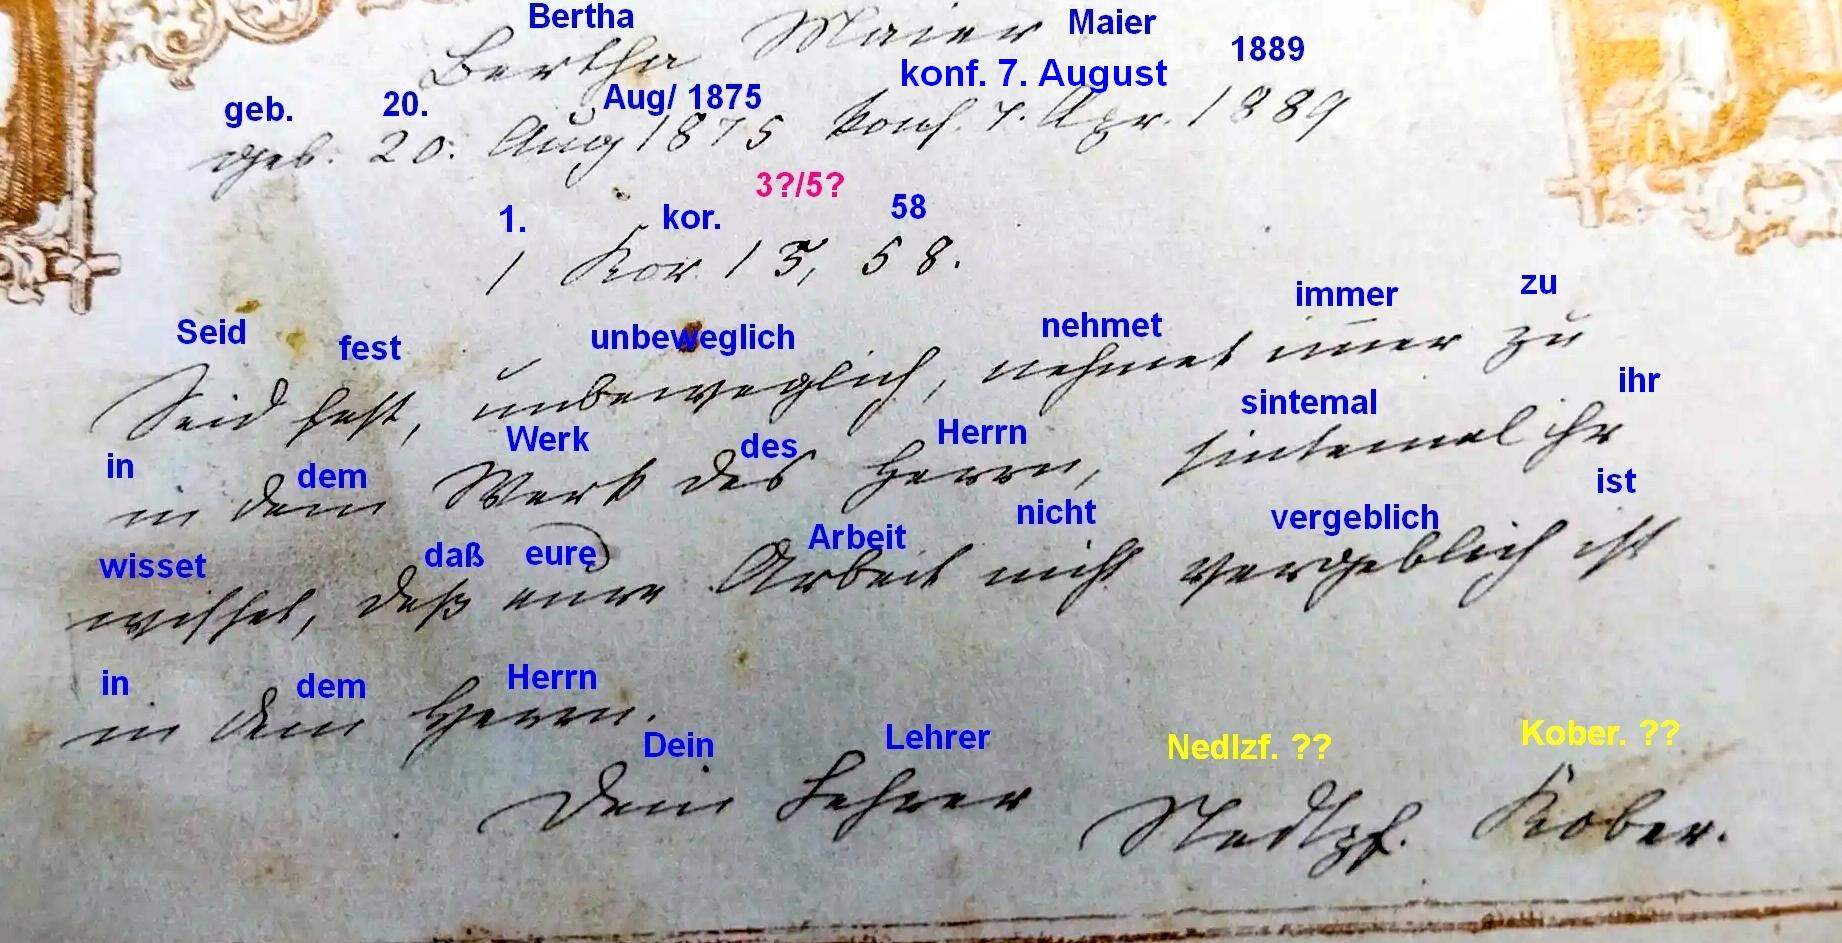 Bertha Maier
Bertha Maier
konf. 7. August 1889
geb. 20. Aug/ 1875
geb. 20. Aug 1875 konf. 7. Apr. 1889
3?/5?
1. kor. 58
1 Kor. 15, 58.
Seid fest unbeweglich nehmet immer zu
Seid fest, unbeweglich, nehmet im̄er zu
in dem Werk des Herrn sintemal ihr
in dem Werk des Herrn, sintemal ihr
wisset daß eure Arbeit nicht vergeblich ist
wisset, daß eure Arbeit nicht vergeblich ist
in dem Herrn
in dem Herrn.
Dein Lehrer Nedlzf. ?? Kober. ??
Dein Lehrer Stadtpf. Kober.